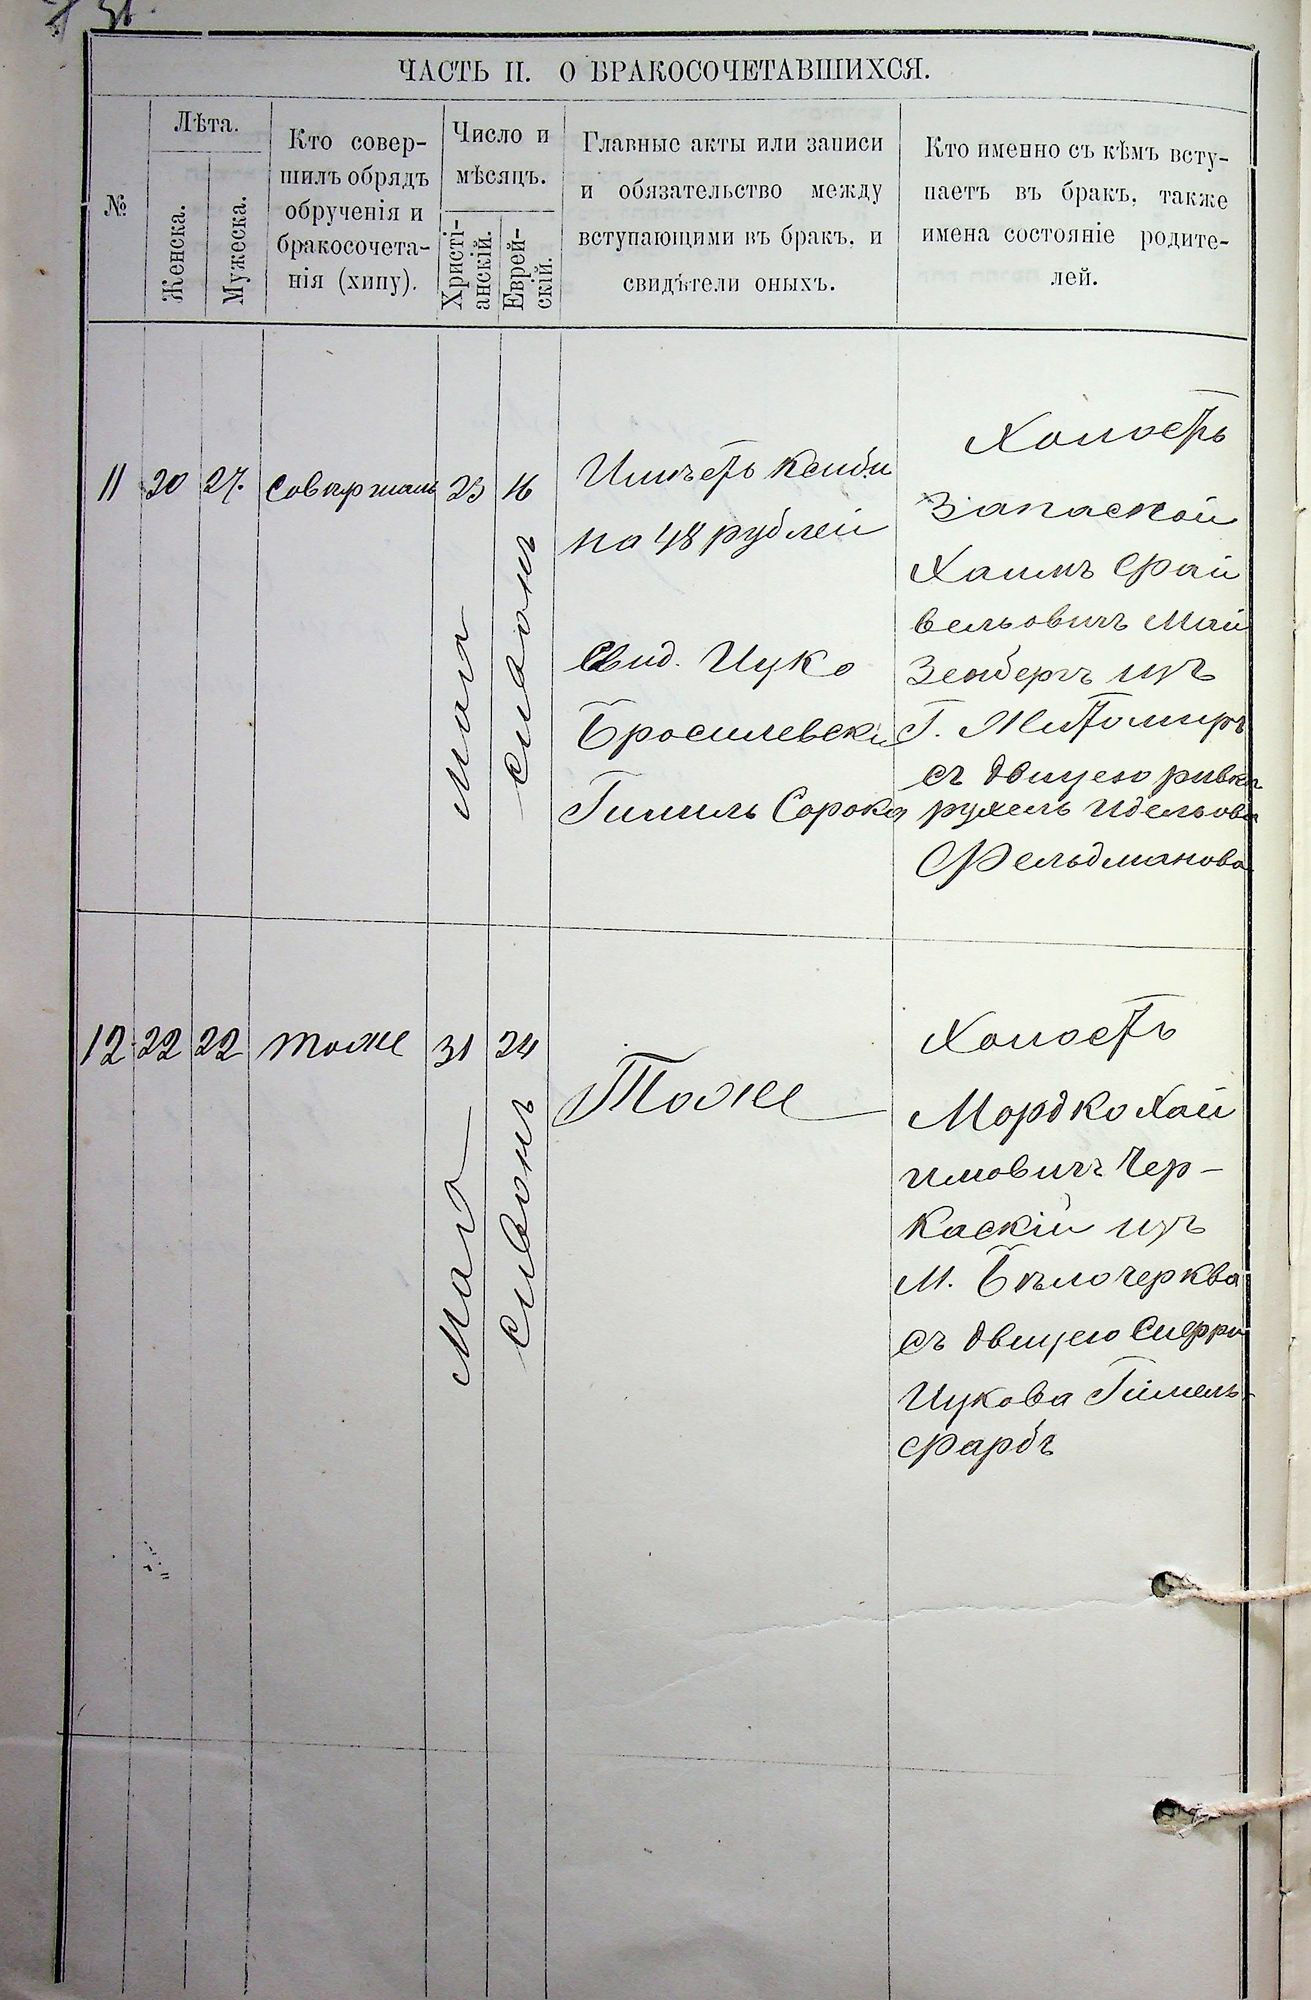 31.
ЧАСТЬ II. О БРАКОСОЧЕТАВШИХСЯ.
№
Лѣта.
Женска.
Мужеска.
Кто совер-
шилъ обрядъ
обрученія и
бракосочета-
нія (хипу).
Число и
мѣсяцъ.
Христі-
анскій.
Еврей-
скій.
Главные акты или записи
и обязательство между
вступающими въ бракъ, и
свидѣтели оныхъ.
Кто именно съ кѣмъ всту-
паетъ въ бракъ, также
имена состояніе родите-
лей.
11 20 27. совершалъ 23 16
Мая
сивонъ
Имѣетъ ксиби
на 48 рублей
Свид. Ицко
Бросилевски
Гимпль Сорока
Холостъ
Запаской
Хаимъ Фай
вельовичъ Май
Зенбергъ изъ
Г. Житомиръ
съ двицею ривка
рухель Идельова
Фельдманова
12 22 22 тоже 31 24
Мая
Сивонъ
Тоже
Холостъ
Мордко Хай
имовичъ Чер-
каскій изъ
М. Бѣлочерква
съ двицею
Ицкова Гимель-
фарбъ